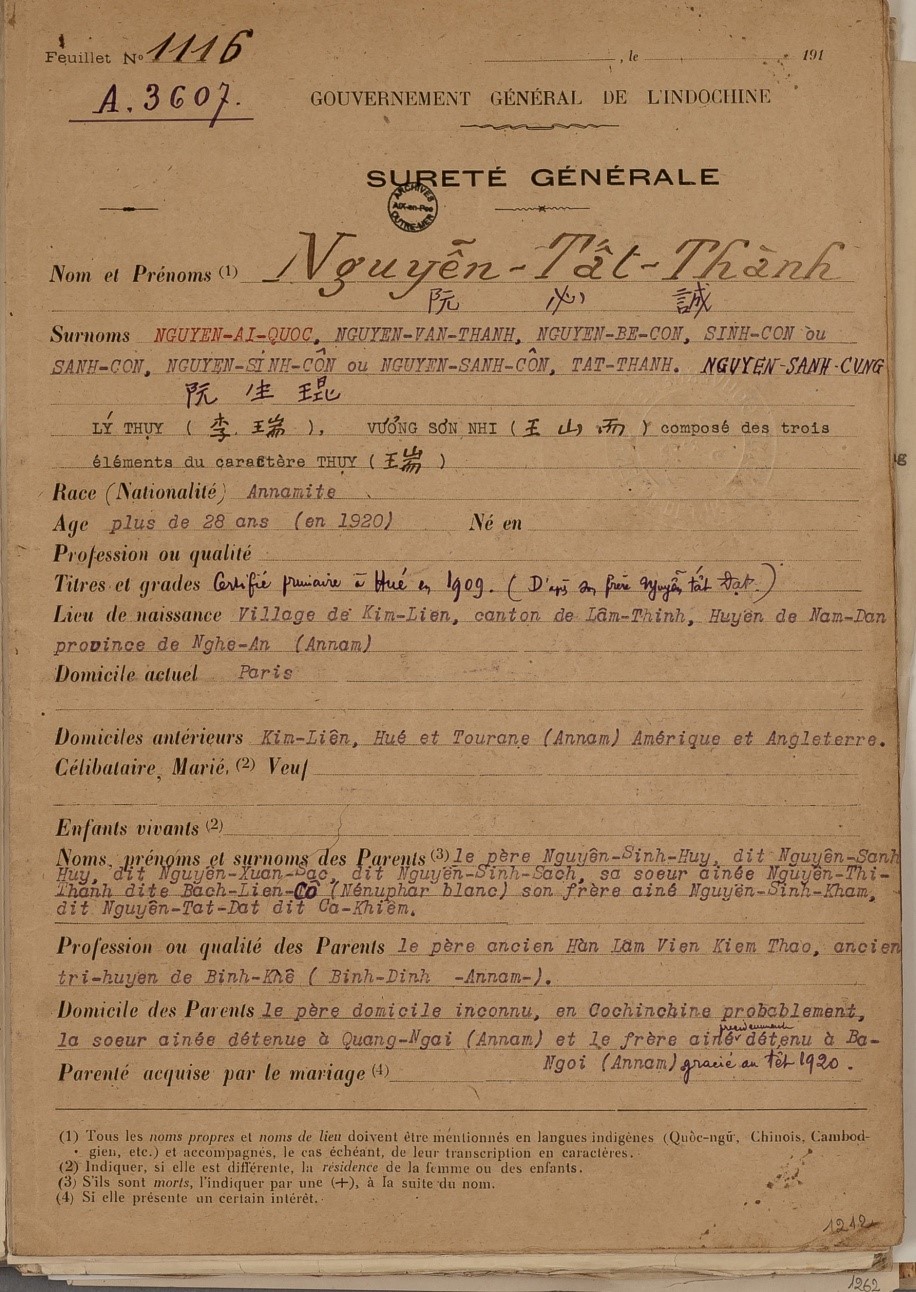 Feuillet N° 1116
, le 191
A.3607.
GOUVERNEMENT GÉNÉRAL DE L'INDOCHINE
SURETÉ GÉNÉRALE
ARCHIVES
AIX-en-Pce
OUTRE-MER
Nom et Prénoms (1) Nguyễn-Tất-Thành
阮 必 誠
Surnoms NGUYEN-AI-QUOC, NGUYEN-VAN-THANH, NGUYEN-BE-CON, SINH-CON ou
SANH-CON, NGUYEN-SINH-CÔN ou NGUYEN-SANH-CÔN, TAT-THANH. NGUYEN-SANH-CUNG
阮 生 琨
LÝ THỤY ( 李 瑞 ), VƯƠNG SƠN NHI ( 王 山 而 ) composé des trois
éléments du caractère THỤY ( 瑞 )
Race (Nationalité) Annamite
Age plus de 28 ans (en 1920) Né en
Profession ou qualité
Titres et grades Certifié primaire à Hué en 1909. (D'aps son frère Nguyễn tất Đạt.)
Lieu de naissance Village de Kim-Lien, canton de Lâm-Thinh, Huyên de Nam-Dan
province de Nghe-An (Annam)
Domicile actuel Paris
Domiciles antérieurs Kim-Liên, Hué et Tourane (Annam) Amérique et Angleterre.
Célibataire, Marié, (2) Veuf
Enfants vivants (2)
Noms, prénoms et surnoms des Parents (3) le père Nguyên-Sinh-Huy, dit Nguyên-Sanh
Huy, dit Nguyên-Xuan-Sac, dit Nguyên-Sinh-Sach, sa soeur ainée Nguyên-Thi-
Thanh dite Bach-Lien-CÔ (Nénuphar blanc) son frère ainé Nguyên-Sinh-Kham,
dit Nguyên-Tat-Dat dit Ca-Khiêm.
Profession ou qualité des Parents le père ancien Hàn Lâm Vien Kiem Thao, ancien
tri-huyen de Binh-Khê ( Binh-Dinh -Annam-).
Domicile des Parents le père domicile inconnu, en Cochinchine probablement,
la soeur ainée détenue à Quang-Ngai (Annam) et le frère ainé détenu à Ba-
Ngoi (Annam) gracié au Têt 1920.
Parenté acquise par le mariage (4)
(1) Tous les noms propres et noms de lieu doivent être mentionnés en langues indigènes (Quôc-ngũ, Chinois, Cambod-
gien, etc.) et accompagnés, le cas échéant, de leur transcription en caractères.
(2) Indiquer, si elle est différente, la résidence de la femme ou des enfants.
(3) S'ils sont morts, l'indiquer par une (+), à la suite du nom.
(4) Si elle présente un certain intérêt.
1212
1262